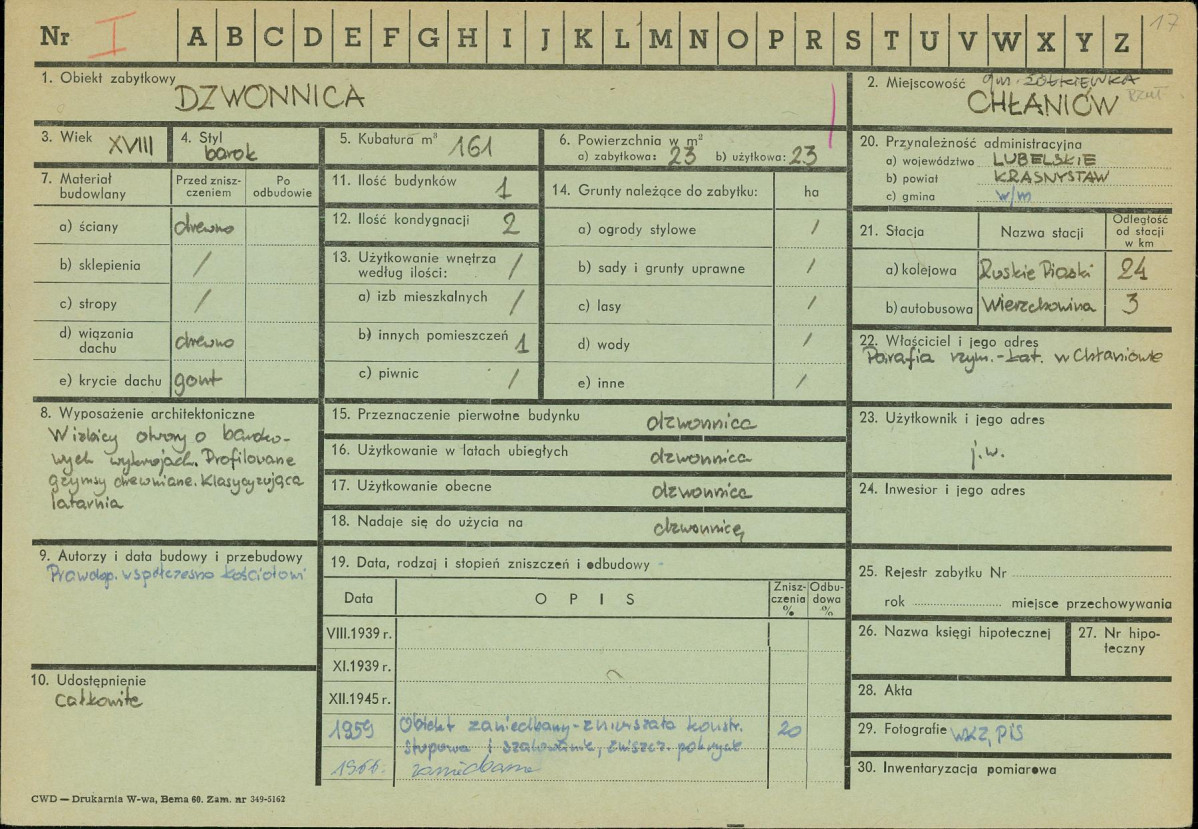 Nr I A B C D E F G H I J K L M N O P R S T U V W X Y Z 17
1. Obiekt zabytkowy
DZWONNICA
2. Miejscowość gm. ŻÓŁKIEWKA
CHŁANIÓW
3. Wiek XVIII
4. Styl
barok
5. Kubatura m³ 161
6. Powierzchnia w m²
a) zabytkowa: 23 b) użytkowa: 23
20. Przynależność administracyjna
a) województwo LUBELSKIE
b) powiat KRASNYSTAW
c) gmina w/m
7. Materiał budowlany
Przed znisz-
czeniem
Po
odbudowie
a) ściany drewno
b) sklepienia /
c) stropy /
d) wiązania
dachu drewno
e) krycie dachu gont
11. Ilość budynków 1
12. Ilość kondygnacji 2
13. Użytkowanie wnętrza
według ilości: /
a) izb mieszkalnych /
b) innych pomieszczeń 1
c) piwnic /
14. Grunty należące do zabytku: ha
a) ogrody stylowe /
b) sady i grunty uprawne /
c) lasy /
d) wody /
e) inne /
21. Stacja
Nazwa stacji
Odległość
od stacji
w km
a) kolejowa Ruskie Piaski 24
b) autobusowa Wierzchowina 3
22. Właściciel i jego adres
Parafia rzym.-kat. w Chłaniowie
8. Wyposażenie architektoniczne
W izbicy otwory o baroko-
wych wykrojach. Profilowane
gzymsy drewniane. Klasycyzująca
latarnia
15. Przeznaczenie pierwotne budynku dzwonnica
16. Użytkowanie w latach ubiegłych dzwonnica
17. Użytkowanie obecne dzwonnica
18. Nadaje się do użycia na dzwonnicę
23. Użytkownik i jego adres
j.w.
24. Inwestor i jego adres
9. Autorzy i data budowy i przebudowy
Prawdop. współczesno kościołowi
19. Data, rodzaj i stopień zniszczeń i odbudowy
Data
OPIS
Znisz-
czenia
%
Odbu-
dowa
%
VIII.1939 r.
XI.1939 r.
XII.1945 r.
1959 Obiekt zaniedbany - zmurszała konstr. 20
słupowa i szalowanie, zniszcz. pokrycie
1966. zaniedbana
25. Rejestr zabytku Nr
rok miejsce przechowywania
26. Nazwa księgi hipotecznej
27. Nr hipo-
teczny
10. Udostępnienie
całkowite
28. Akta
29. Fotografie WKZ, PIS
30. Inwentaryzacja pomiarowa
CWD — Drukarnia W-wa, Bema 60. Zam. nr 349-5162